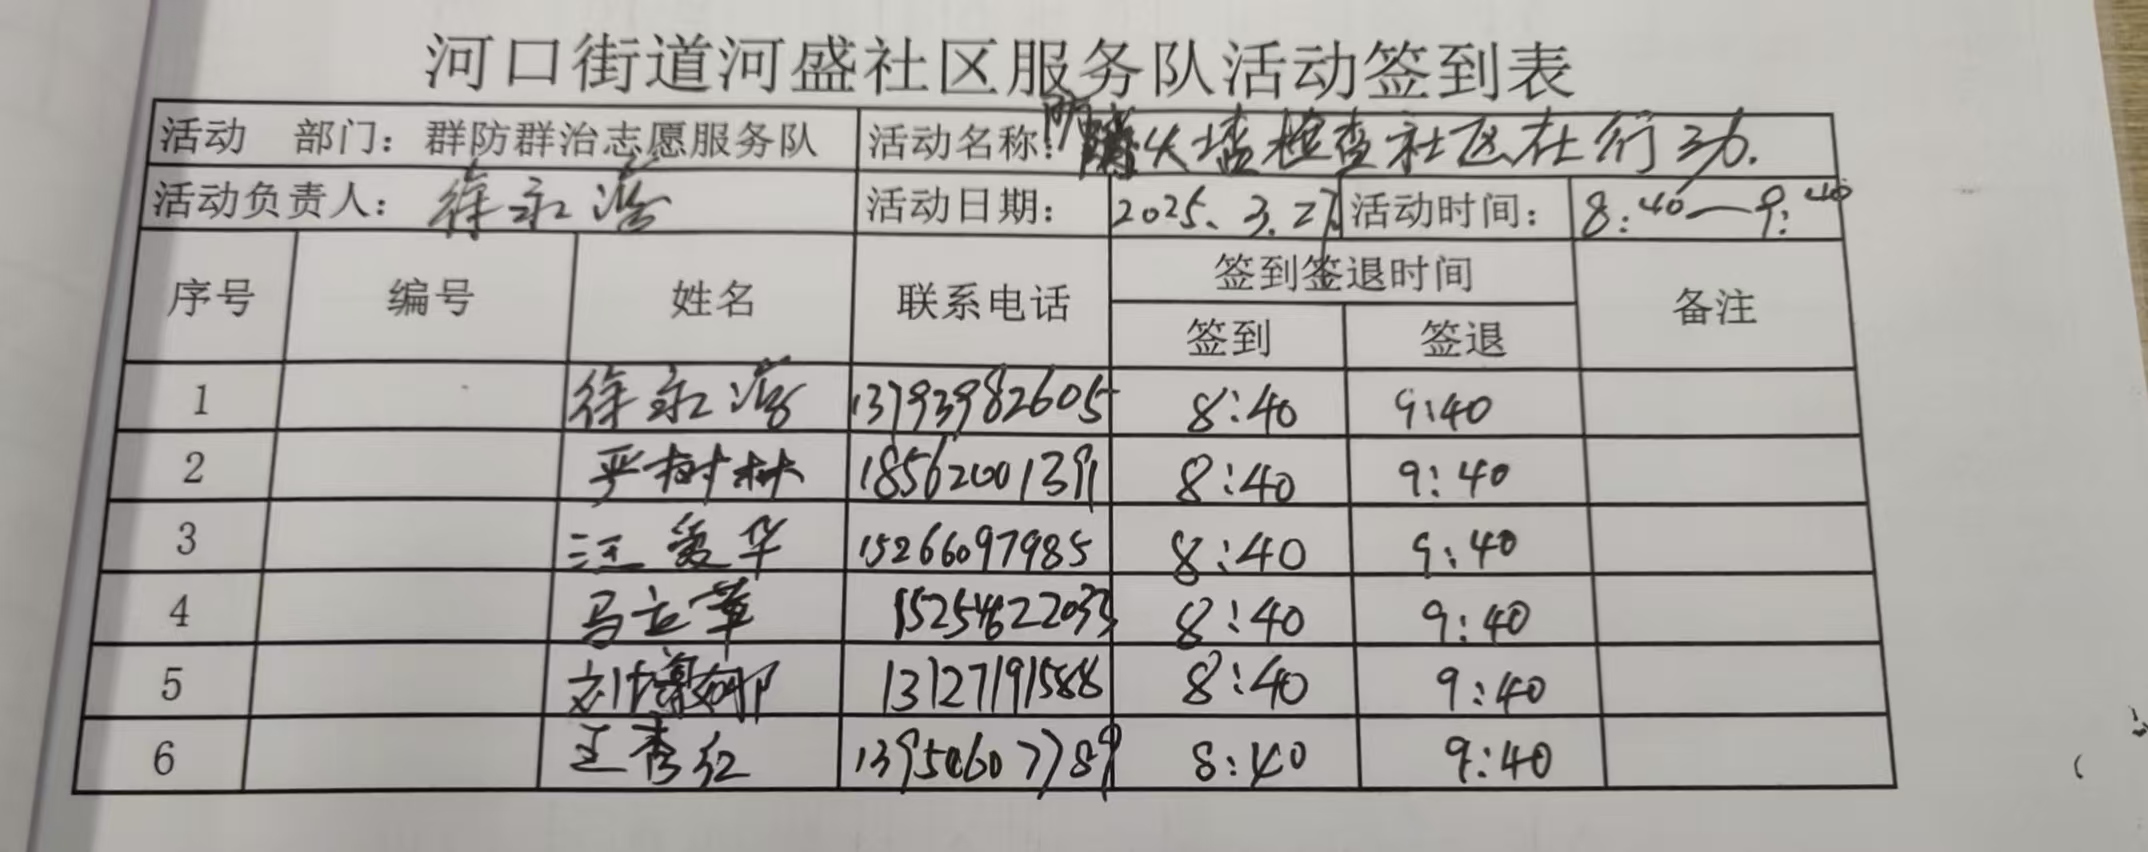 河口街道河盛社区服务队活动签到表
活动 部门：群防群治志愿服务队 活动名称：防火墙检查社区在行动.
活动负责人：徐永 活动日期：2025.3.27 活动时间：8:40—9:40
序号 编号 姓名 联系电话 签到签退时间 备注
签到 签退
1 徐永 13793982605 8:40 9:40
2 严树林 18562001391 8:40 9:40
3 汪爱华 15266097985 8:40 9:40
4 马立革 15254622033 8:40 9:40
5 刘 13127191588 8:40 9:40
6 王秀红 13950607789 8:40 9:40